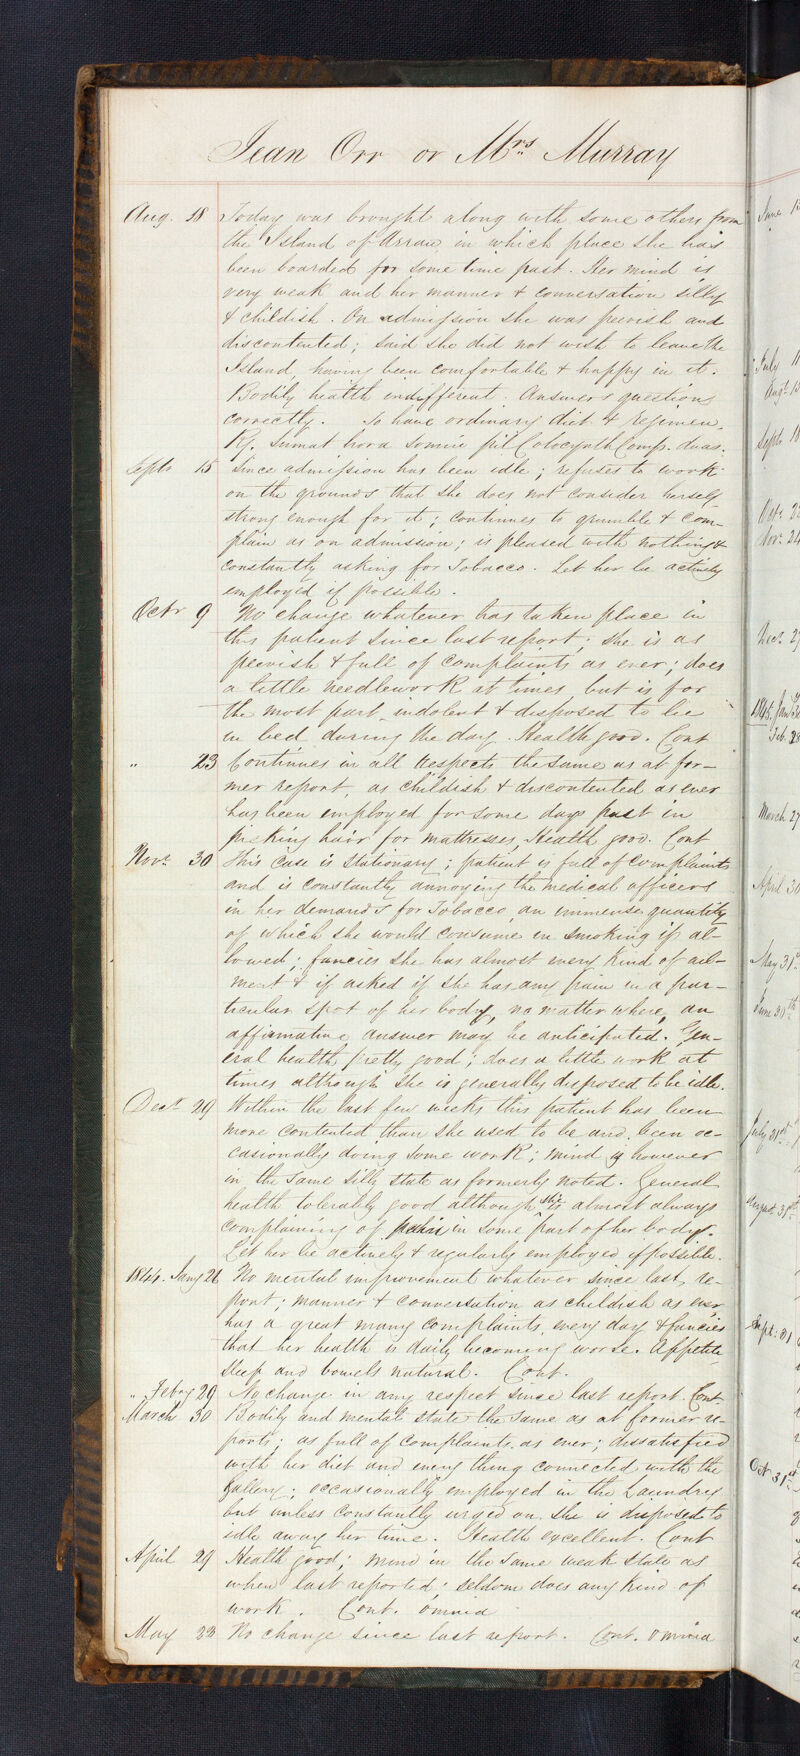 Jean Orr or Mrs Murray
Aug. 18 Today was brought along with some others from
the Island of Arran, in which place she has
been boarded for some time past. Her mind is
very weak and her manner & conversation silly
& childish. On admission she was peevish and
discontented; said she did not wish to leave the
Island, having been comfortable & happy in it.
Bodily health indifferent. Answers questions
correctly. To have ordinary diet & regimen.
Rx. Sumat hora somni pil Colocynth Comp. duas.
Septr 15 Since admission has been idle; refuses to work
on the grounds that she does not consider herself
strong enough for it; continues to grumble & com-
plain as on admission; is pleased with nothing &
constantly asking for Tobacco. Let her be actively
employed if possible.
Octr 9 No change whatever has taken place in
this patient since last report; she is as
peevish & full of complaints as ever; does
a little needlework at times, but is for
the most part indolent & disposed to lie
in bed during the day. Health good. Cont
" 23 Continues in all respects the same as at for-
mer report, as childish & discontented as ever
has been employed for some days past in
picking hair for mattresses, Health good. Cont
Novr. 30 This case is stationary; patient is full of complaints
and is constantly annoying the medical officers
in her demands for Tobacco, an immense quantity
of which she would consume in smoking if al-
lowed; fancies she has almost every kind of ail-
ment & if asked if she has any pain in a par-
ticular spot of her body, no matter where, an
affirmative answer may be anticipated. Gen-
eral health pretty good; does a little work at
times although she is generally disposed to be idle.
Decr. 29 Within the last few weeks this patient has been
more contented than she used to be and been oc-
casionally doing some work; mind is however
in the same silly state as formerly noted. General
health tolerably good although she is almost always
complaining of pain in some part of her body.
Let her be actively & regularly employed if possible.
1844. Jany 26 No mental improvement whatever since last re-
port; manner & conversation as childish as ever
has a great many complaints every day & fancies
that her health is daily becoming worse. Appetite
sleep and bowels natural. Cont.
" Febry 29 No change in any respect since last report. Cont.
March 30 Bodily and mental state the same as at former re-
ports; as full of complaints as ever; dissatisfied
with her diet and every thing connected with the
Gallery; occasionally employed in the Laundry
but unless constantly urged on she is disposed to
idle away her time. Health excellent. Cont
April 29 Health good; mind in the same weak state as
when last reported; seldom does any kind of
work. Cont. omnia
May 23 No change since last report. Cont. omnia
June
July 11
Septr 18
Octr 2
Novr. 24
Decr. 27
1845. Jany
Feb. 28
March 27
April 30
May 31st
June 30th
July 31st
August 31st
Sept. 31
Oct 31st